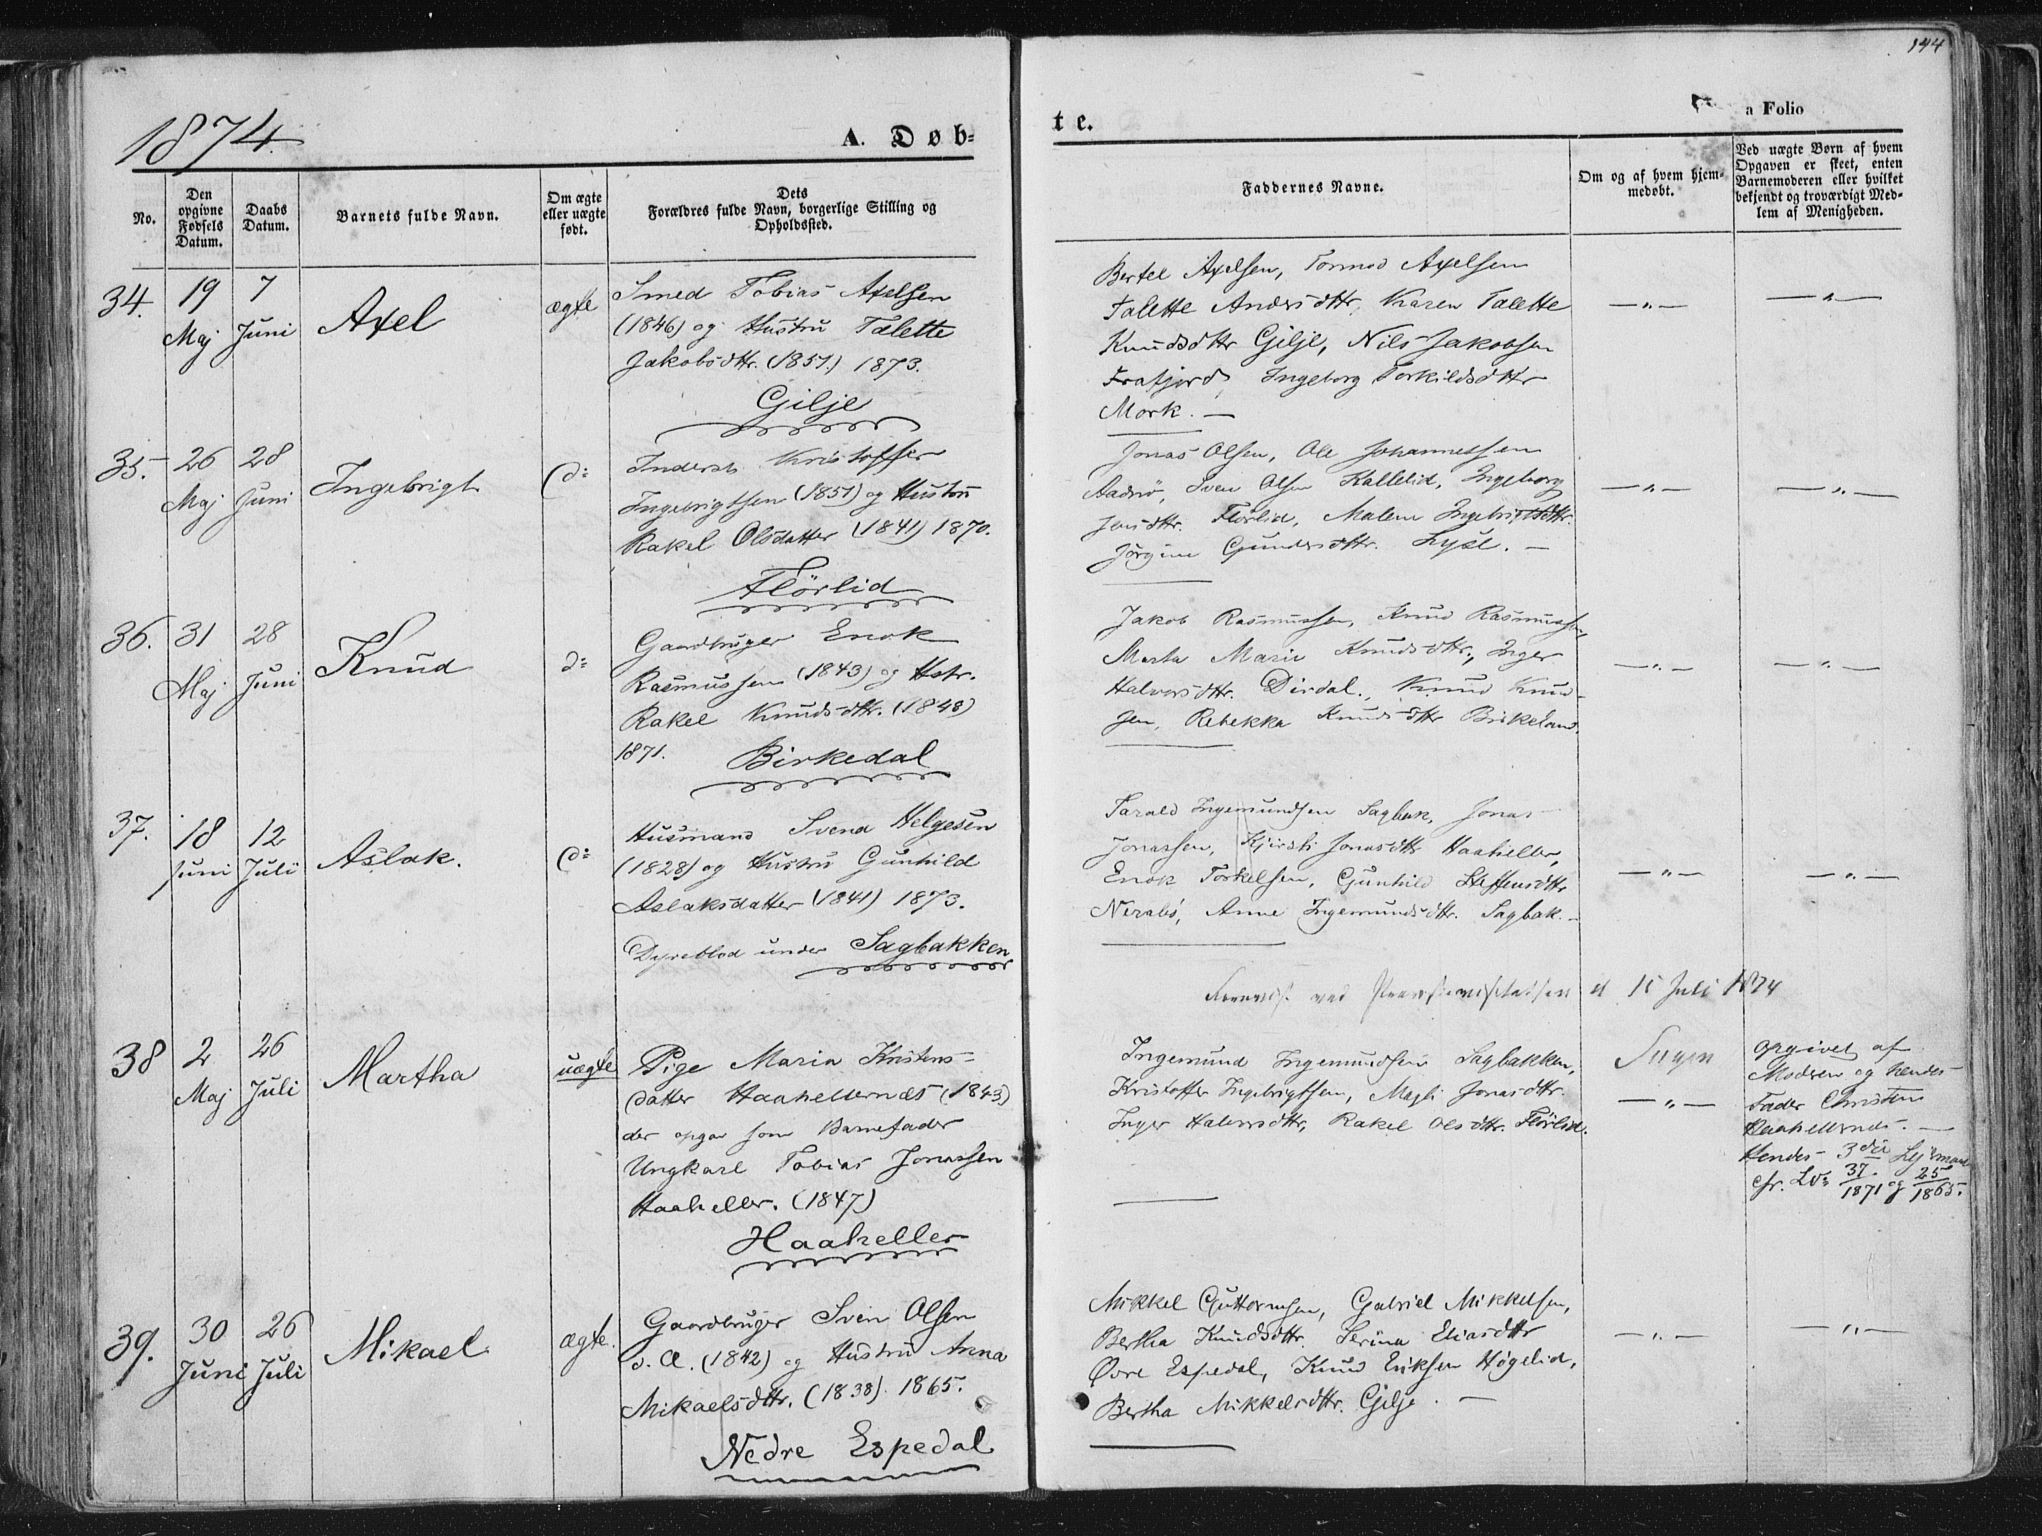 144
1874.
A. Døb-
te.
a Folio
No.
Den opgivne Fødsels Datum.
Daabs Datum.
Barnets fulde Navn.
Om ægte eller uægte født.
Dets Forældres fulde Navn, borgerlige Stilling og Opholdssted.
Faddernes Navne.
Om og af hvem hjem-medøbt.
Ved uægte Børn af hvem Opgaven er skeet, enten Barnemoderen eller hvilket bekjendt og troværdigt Med-lem af Menigheden.
34.
19 Maj
7 Juni
Axel
ægte
Smed Tobias Axelsen
(1846) og Hustru Talette
Jakobsdttr. (1851.) 1873.
Gilje
Bertel Axelsen, Tormod Axelsen
Talette Andersdttr, Karen Talette
Knudsdttr Gilje, Nils Jakobsen
Frafjord, Ingeborg Torkildsdttr
Mørk. —
—"—
—"—
35.
26 Maj
28 Juni
Ingebrigt
d:
Inderst Kristoffer
Ingebrigtsen (1851) og Hustru
Rakel Olsdatter (1841) 1870.
Flörlid
Jonas Olsen, Ole Johannessen
Aadnö, Sven Olsen Kallelid, Ingeborg
Jensdttr. Flörlid, Malene Ingebrigtsdttr.
Jörgine Gundersdttr. Lyse. —
—"—
—"—
36.
31 Maj
28 Juni
Knud
d:
Gaardbruger Enok
Rasmussen (1843) og Hstr.
Rakel Knudsdttr. (1848)
1871.
Birkedal
Jakob Rasmussen, Knud Rasmussen,
Marta Marie Knudsdttr., Inger
Halvorsdttr. Dirdal., Knud Knud-
sen, Rebekka Knudsdttr Birkeland.
—"—
—"—
37.
18 Juni
12 Juli
Aslak.
d:
Husmand Svend Helgesen
(1828) og Hustru Gunhild
Aslaksdatter (1841) 1873.
Dyreblod under Sagbakken
Tarald Ingemundsen Sagbak, Jonas
Jonassen, Kjirsti Jonasdttr Haaheller,
Enok Torkelsen, Gunhild Steffensdttr
Nerabö, Anne Ingemundsdttr. Sagbak. -
—"—
—"—
ved
d 15 Juli 1874
38
2 Maj
26 Juli
Martha
uægte
Pige Maria Kristens-
datter Haahellernæs (1843)
der opgav som Barnefader
Ungkarl Tobias Jonassen
Haaheller. (1847)
Haaheller
Ingemund Ingemundsen Sagbakken,
Kristoffer Ingebrigtsen, Magli Jonasdttr.
Inger Halvorsdttr, Rakel Olsdttr. Flörlid.
—"—
opgivet af
Modren og hendes
Fader Christen
Haahellernæs. —
Hendes 3die Lejermaal
cfr. No: 37/1871 og 25/1865.
39.
30 Juni
26 Juli
Mikael
ægte.
Gaardbruger Sven Olsen
d. Æ. (1842) og Hustru Anna
Mikaelsdttr. (1838). 1865.
Nedre Espedal
Mikkel Guttormsen, Gabriel Mikkelsen,
Bertha Knudsdttr, Serina Eliasdttr
Övre Espedal, Knud Eriksen Högelid,
Bertha Mikkelsdttr. Gilje. —
—"—
—"—